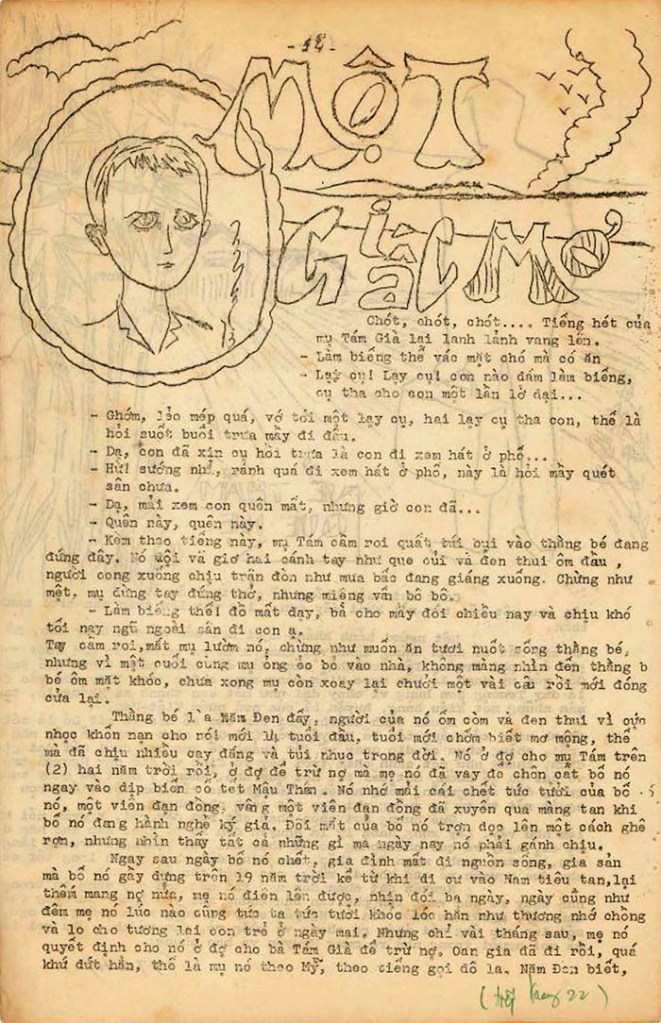 - 12 -
MỘT
GIẤC MƠ
Chót, chót, chót.... Tiếng hét của
mụ Tám Già lại lanh lảnh vang lên.
- Làm biếng thế vác mặt chó mà có ăn
- Lạy cụ! Lạy cụ! con nào dám làm biếng,
cụ tha cho con một lần lỡ dại...
- Ghớm, lẻo mép quá, vớ tới một lạy cụ, hai lạy cụ tha con, thế là
hỏi suốt buổi trưa mầy đi đâu.
- Dạ, con đã xin cụ hồi trưa là con đi xem hát ở phố...
- Hứ! sướng nhỉ, rảnh quá đi xem hát ở phố, này là hỏi mầy quét
sân chưa.
- Dạ, mải xem con quên mất, nhưng giờ con đã...
- Quên này, quên này.
- Kèm theo tiếng này, mụ Tám cầm roi quất túi bụi vào thằng bé đang
đứng đấy. Nó vội vã giơ hai cánh tay như que củi và đen thui ôm đầu ,
người cong xuống chịu trận đòn như mưa bão đang giáng xuống. Chừng như
mệt, mụ dừng tay đứng thở, nhưng miệng vẫn bô bô.
- Làm biếng thế! đồ mất dạy, bà cho mầy đói chiều nay và chịu khó
tối nay ngũ ngoài sân đi con ạ.
Tay cầm roi,mắt mụ lườm nó, chừng như muốn ăn tươi nuốt sống thằng bé,
nhưng vì mệt cuối cùng mụ ỏng ẹo bỏ vào nhà, không màng nhìn đến thằng b
bé ôm mặt khóc, chưa xong mụ còn xoay lại chưởi một vài câu rồi mới đóng
cửa lại.
Thằng bé là Năm Đen đấy, người của nó ốm còm và đen thui vì cực
nhọc khốn nạn cho nó! mới 14 tuổi đầu, tuổi mới chớm biết mơ mộng, thế
mà đã chịu nhiều cay đắng và tủi nhục trong đời. Nó ở đợ cho mụ Tám trên
(2) hai năm trời rồi, ở đợ để trừ nợ mà mẹ nó đã vay để chôn cất bố nó
ngay vào dịp biến cố tết Mậu Thân . Nó nhớ mãi cái chết tức tưởi của bố
nó, một viên đạn đồng, vâng một viên đạn đồng đã xuyên qua màng tan khi
bố nó đang hành nghề ký giả. Đôi mắt của bố nó trợn dọc lên một cách ghê
rợn, nhưng nhìn thấy tất cả những gì mà ngày nay nó phải gánh chịu.
Ngay sau ngày bố nó chết, gia đình mất đi nguồn sống, gia sản
mà bố nó gây dựng trên 19 năm trời kể từ khi di cư vào Nam tiêu tan,lại
thêm mang nợ nửa, mẹ nó điên lên được, nhịn đói ba ngày, ngày cũng như
đêm mẹ nó lúc nào cũng tức ta tức tưởi khóc lóc hẳn như thương nhớ chồng
và lo cho tương lai con trẻ ở ngày mai. Nhưng chỉ vài tháng sau, mẹ nó
quyết định cho nó ở đợ cho bà Tám Già để trừ nợ. Oan gia đã đi rồi, quá
khứ dứt hẳn, thế là mụ nó theo Mỹ, theo tiếng gọi đô la. Năm Đen biết,
(tiếp trang 22)